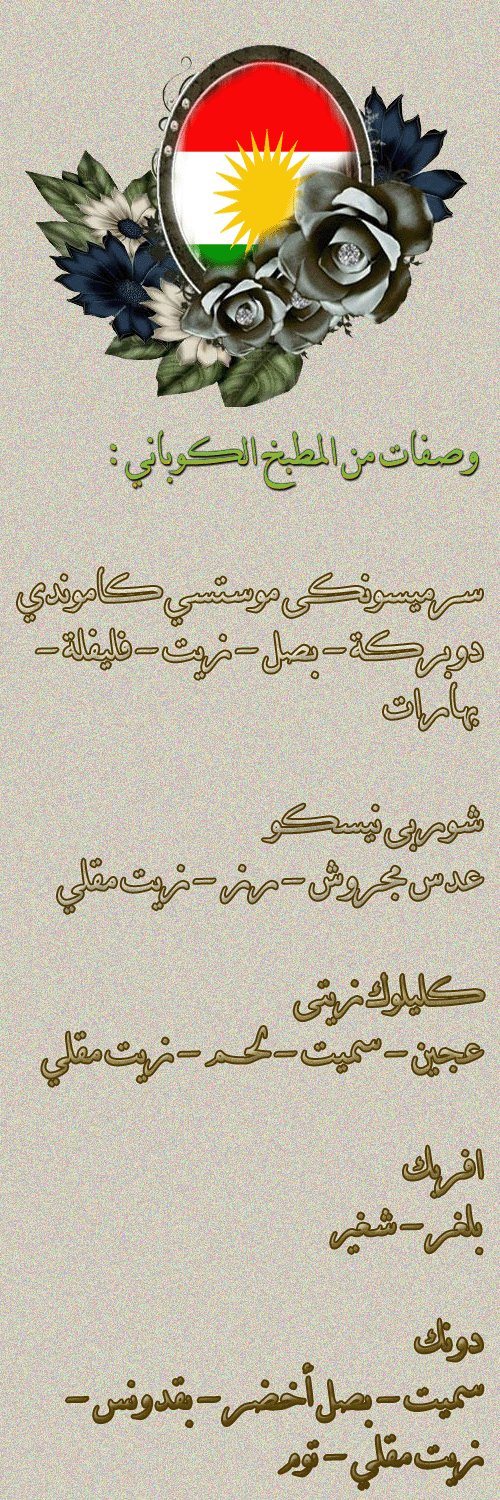 وصفات من المطبخ الكوباني :
سرميسونكى موستسي كاموندي
دوبركة - بصل - زيت - فليفلة -
بهارات
شوربى نيسكو
عدس مجروش - رز - زيت مقلي
كليلوك زيتى
عجين - سميت - لحم - زيت مقلي
افربك
بلغر - شغير
دونك
سميت - بصل أخضر - بقدونس -
زيت مقلي - توم